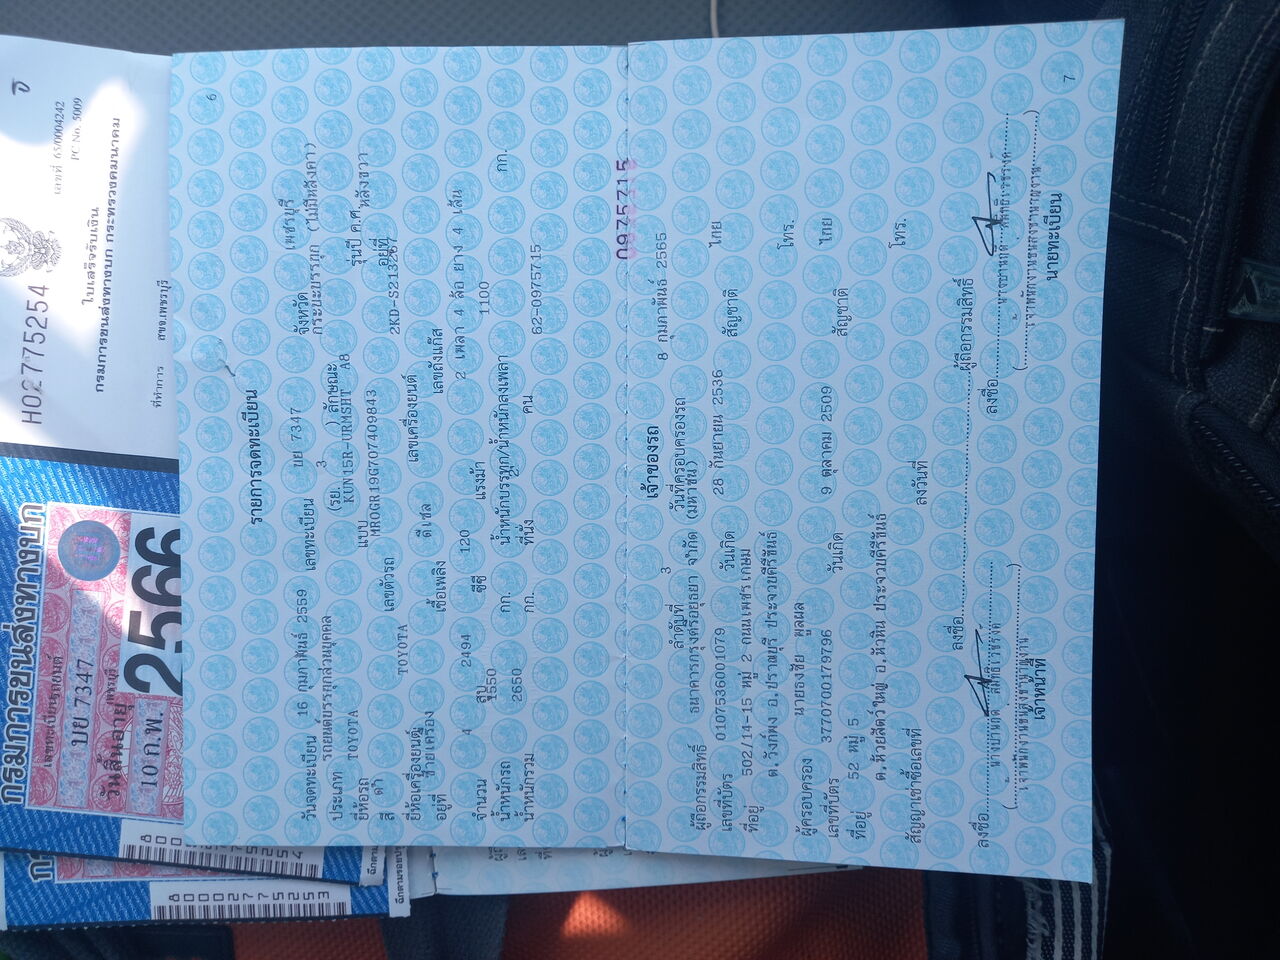 6
รายการจดทะเบียน
วันจดทะเบียน 16 กุมภาพันธ์ 2559 เลขทะเบียน บย 7347 จังหวัด เพชรบุรี
ประเภท รถยนต์บรรทุกส่วนบุคคล (รย. 3 ) ลักษณะ กระบะบรรทุก (ไม่มีหลังคา)
ยี่ห้อรถ TOYOTA แบบ KUN15R-URMSHT A8 รุ่นปี ค.ศ.
สี ดำ เลขตัวรถ MROGR19G707409843 อยู่ที่ หลังขวา
ยี่ห้อเครื่องยนต์ TOYOTA เลขเครื่องยนต์ 2KD-S213267
อยู่ที่ ซ้ายเครื่อง เชื้อเพลิง ดีเซล เลขถังแก๊ส
จำนวน 4 สูบ 2494 ซีซี 120 แรงม้า 2 เพลา 4 ล้อ ยาง 4 เส้น
น้ำหนักรถ 1550 กก. น้ำหนักบรรทุก/น้ำหนักลงเพลา 1100 กก.
น้ำหนักรวม 2650 กก. ที่นั่ง 2 คน 62-0975715
0975715
เจ้าของรถ
ลำดับที่ 3 วันที่ครอบครองรถ 8 กุมภาพันธ์ 2565
ผู้ถือกรรมสิทธิ์ ธนาคารกรุงศรีอยุธยา จำกัด (มหาชน)
เลขที่บัตร 0107536001079 วันเกิด 28 กันยายน 2536 สัญชาติ ไทย
ที่อยู่ 502/14-15 หมู่ 2 ถนนเพชรเกษม
ต.วังก์พง อ.ปราณบุรี ประจวบคีรีขันธ์ โทร.
ผู้ครอบครอง นายธงชัย พูลผล
เลขที่บัตร 3770700179796 วันเกิด 9 ตุลาคม 2509 สัญชาติ ไทย
ที่อยู่ 52 หมู่ 5
ต.ห้วยสัตว์ใหญ่ อ.หัวหิน ประจวบคีรีขันธ์ โทร.
สัญญาเช่าซื้อเลขที่ ลงวันที่
ลงชื่อ ผู้ถือกรรมสิทธิ์
ลงชื่อ ลงชื่อ
เจ้าหน้าที่ นายทะเบียน
7
H0275254
เลขที่ 65/0004242
PC No. 5009
ใบเสร็จรับเงิน
กรมการขนส่งทางบก กระทรวงคมนาคม
ที่ทำการ สขจ.เพชรบุรี
กรมการขนส่งทางบก
เลขทะเบียนรถยนต์
บย 7347
เพชรบุรี
วันสิ้นอายุ
10 ก.พ. 2566